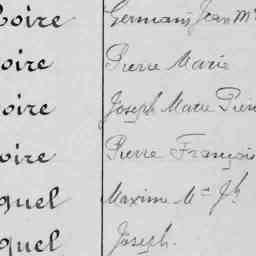 oire Germain Jean M
oire Pierre Marie
oire Joseph Marie Pierr
oire Pierre François
quel Maxime Mie Jh
quel Joseph.